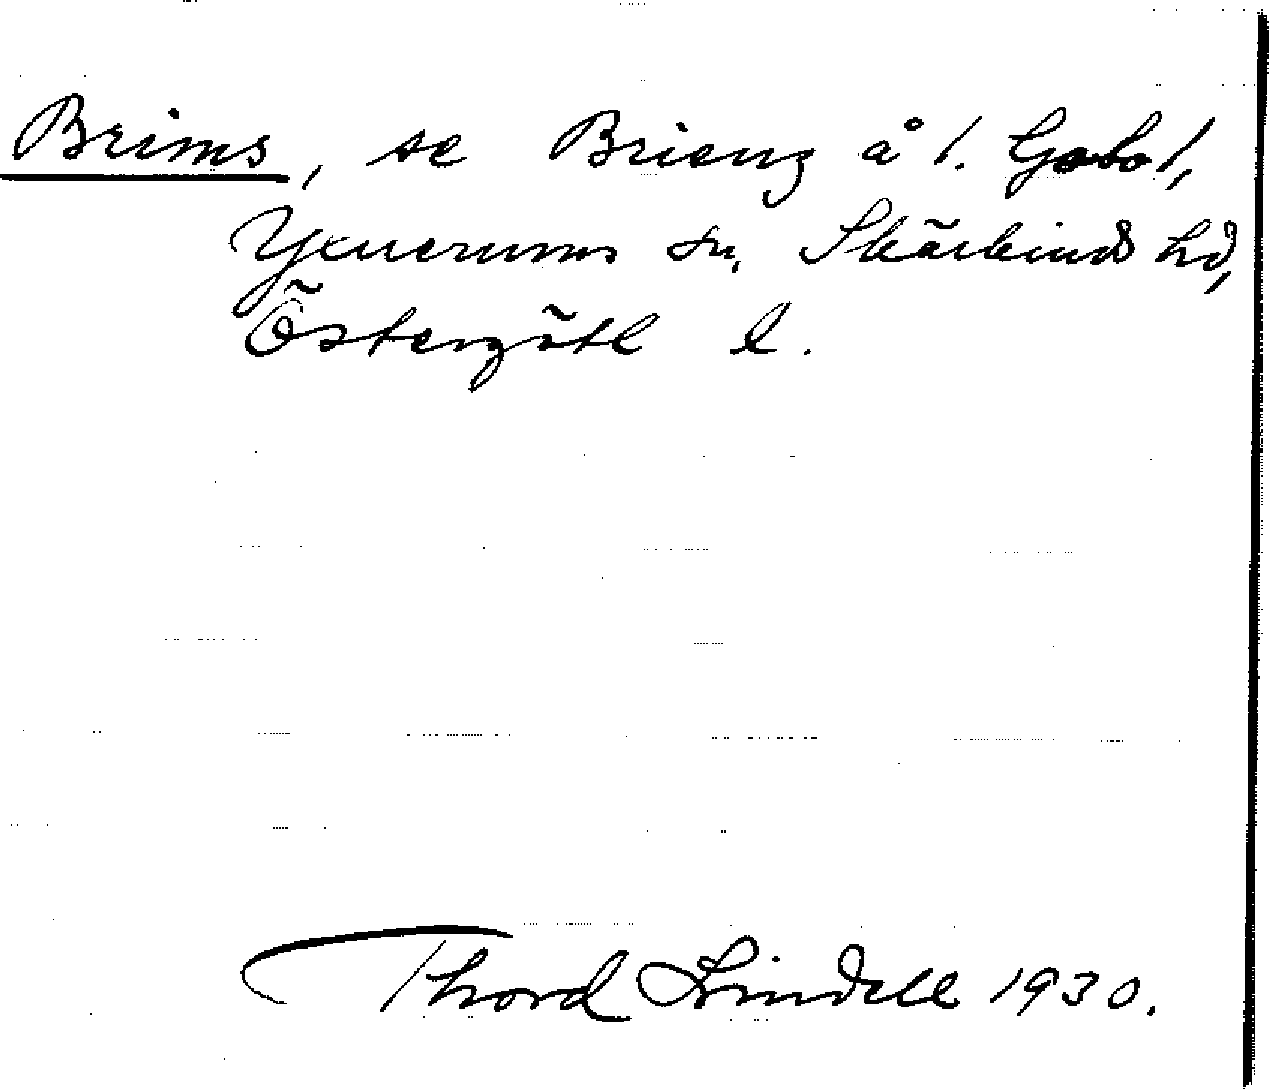 Brims, se Brienz å 1. Gobo 1,
Yxnerums sn, Skärkinds hd,
Östergötl l.
Thord Lindell 1930.